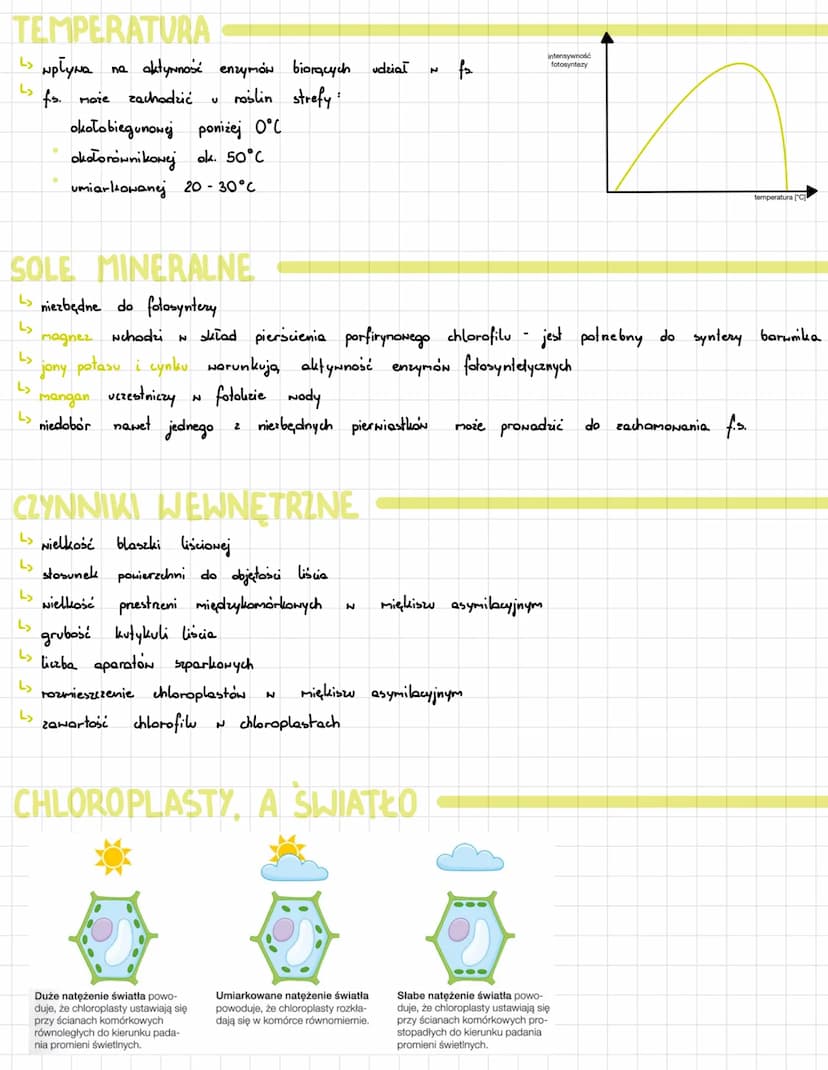 TEMPERATURA
↳ wpływa na aktywność enzymów biorących udział w fs.
↳ fs. może zachodzić u roślin strefy:
okołobiegunowej poniżej 0°C
• okołorównikowej ok. 50°C
• umiarkowanej 20 - 30°C
intensywność
fotosyntezy
temperatura [°C]
SOLE MINERALNE
↳ niezbędne do fotosyntezy
↳ magnez wchodzi w skład pierścienia porfirynowego chlorofilu - jest potrzebny do syntezy barwnika
↳ jony potasu i cynku warunkują aktywność enzymów fotosyntetycznych
↳ mangan uczestniczy w fotolizie wody
↳ niedobór nawet jednego z niezbędnych pierwiastków może prowadzić do zachamowania f.s.
CZYNNIKI WEWNĘTRZNE
↳ wielkość blaszki liściowej
↳ stosunek powierzchni do objętości liścia
↳ wielkość przestrzeni międzykomórkowych w miękiszu asymilacyjnym
↳ grubość kutykuli liścia
↳ liczba aparatów szparkowych
↳ rozmieszczenie chloroplastów w miękiszu asymilacyjnym
↳ zawartość chlorofilu w chloroplastach
CHLOROPLASTY, A ŚWIATŁO
Duże natężenie światła powo-
duje, że chloroplasty ustawiają się
przy ścianach komórkowych
równoległych do kierunku pada-
nia promieni świetlnych.
Umiarkowane natężenie światła
powoduje, że chloroplasty rozkła-
dają się w komórce równomiernie.
Słabe natężenie światła powo-
duje, że chloroplasty ustawiają się
przy ścianach komórkowych pro-
stopadłych do kierunku padania
promieni świetlnych.